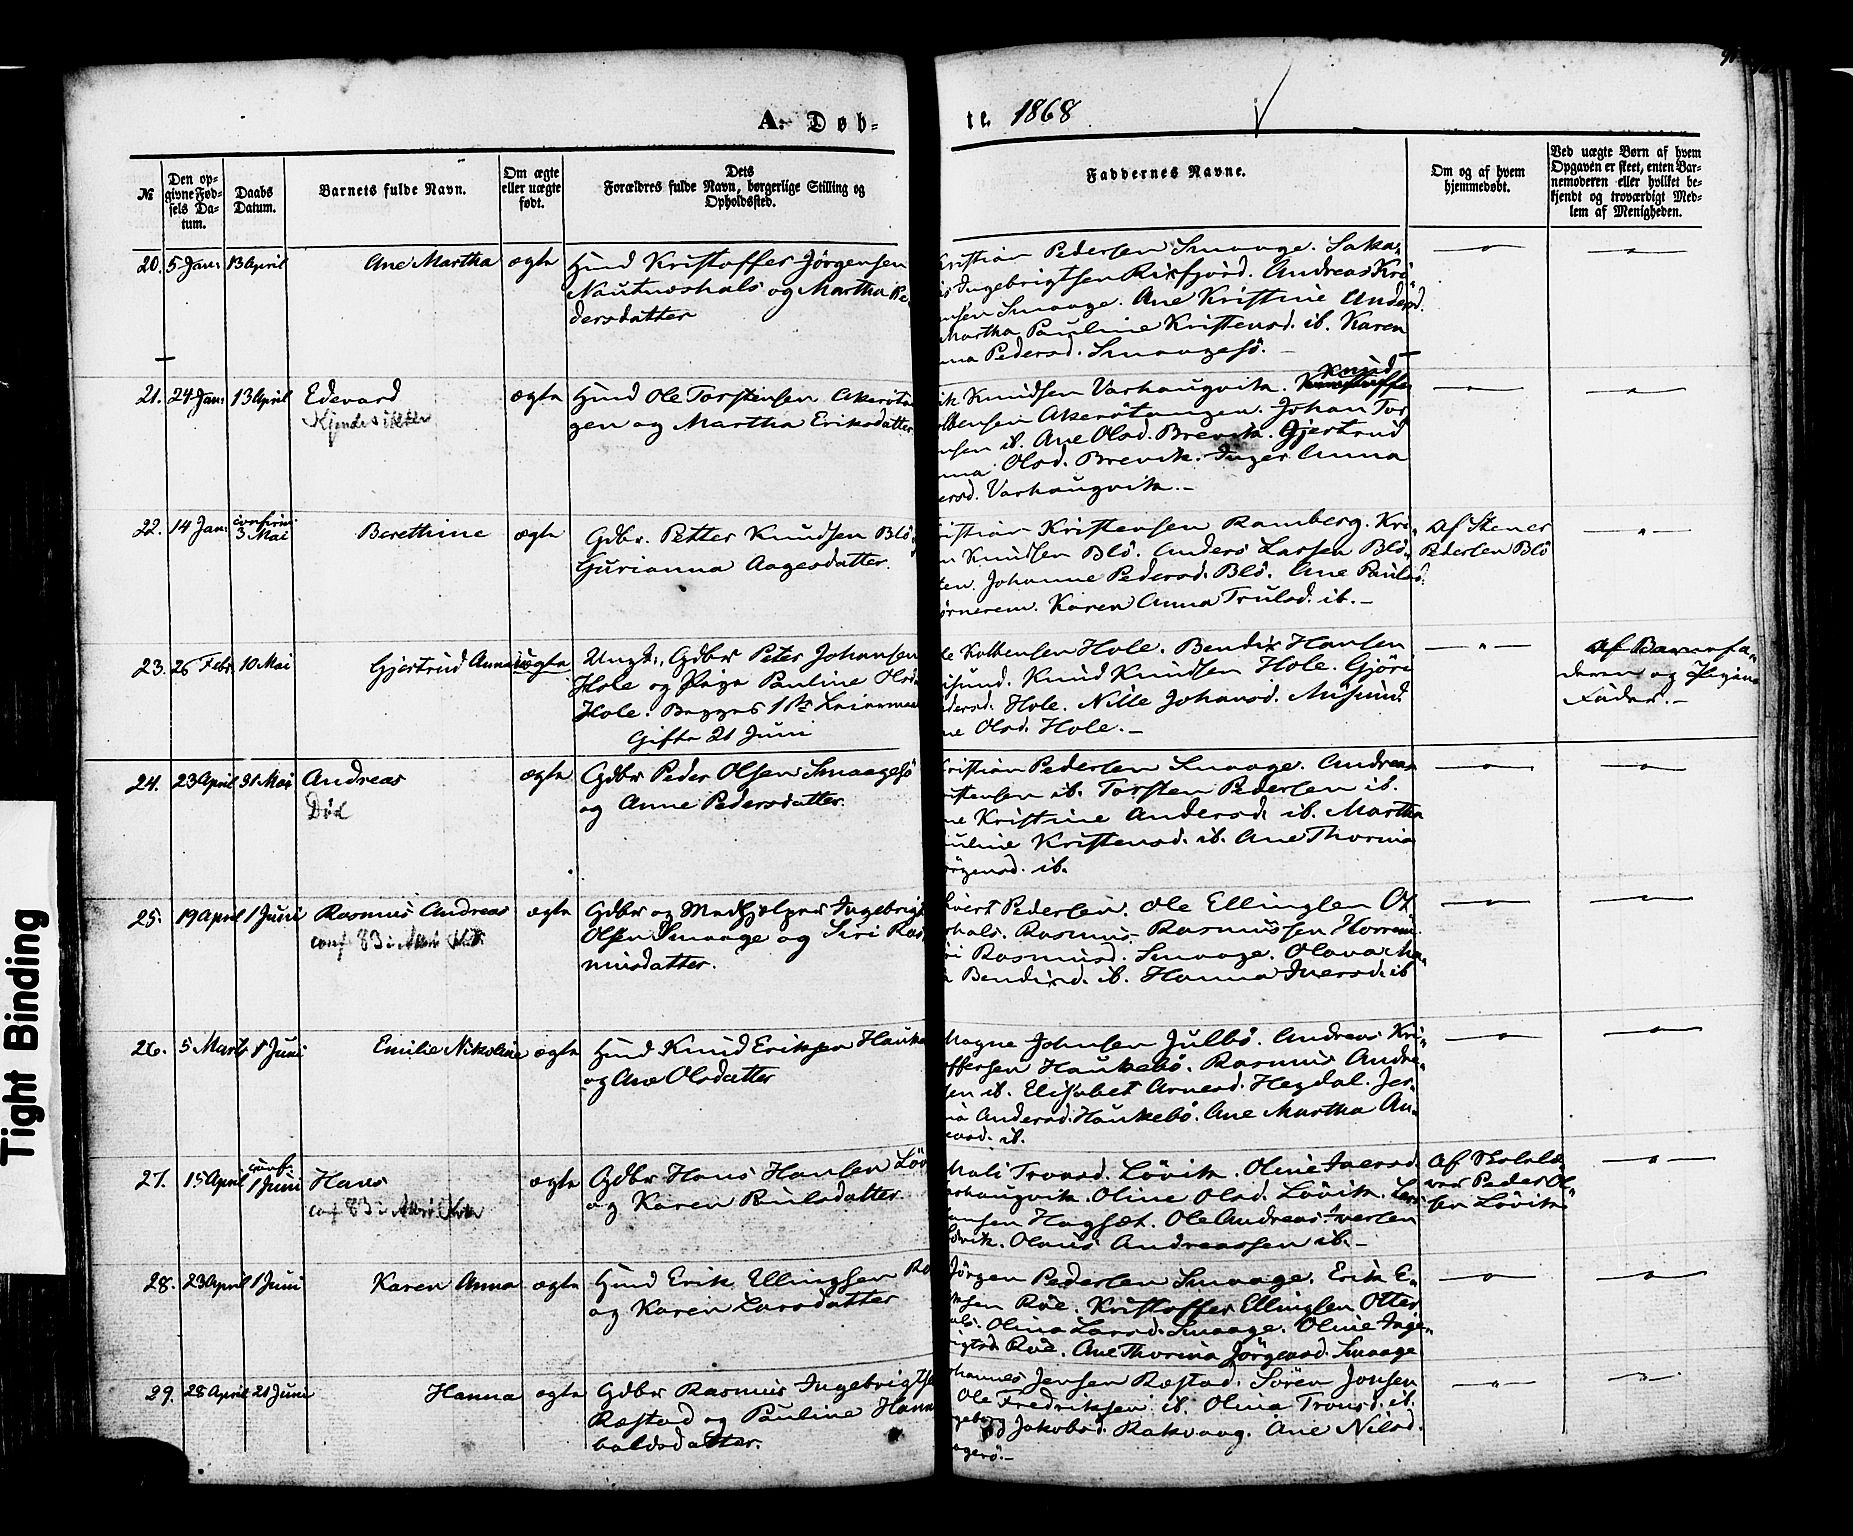 A. Døb-
te. 1868
№
Den op-
givne Fød-
sels Da-
tum.
Daabs
Datum.
Barnets fulde Navn.
Om ægte
eller uægte
født.
Dets
Forældres fulde Navn, borgerlige Stilling og
Opholdssted.
Faddernes Navne.
Om og af hvem
hjemmedøbt.
Ved uægte Børn af hvem
Opgaven er skeet, enten Bar-
nemoderen eller hvilket be-
kjendt og troværdigt Med-
lem af Menigheden.
20. 5 Jan: 13 April Ane Martha ægte
Hmd Kristoffer Jörgensen
Nautneshals og Martha Pe-
dersdatter
Kristian Pedersen Smaage. Saka-
Ingebrigtsen Rixfjord. Andreas Kri-
Smaage. Ane Kristine Andersd.
Martha Pauline Kristensd. ib. Karen
Pedersd. Smaagesö.
21. 24 Jan: 13 April Edevard ægte
Kjendes ikke
Hmd Ole Torstensen Akerötan
gen og Martha Eriksdatter
Knudsen Varhaugvik. Knud
Akerötangen. Johan Tor
ib. Ane Olsd. Brevik. Gjertrud
Olsd. Brevik. Inger Anna
Varhaugvik.
22. 14 Jan: confirm. 3 Mai Berethine ægte
Gdbr. Petter Knudsen Blö,
Gurianna Aagesdatter.
Kristian Kristensen Ramberg. Kri-
Knudsen Blö. Anders Larsen Blö-
ten. Johanne Pedersd. Blö. Ane Paulsd.
Karen Anna Trulsd. ib.
Af Stener
Pedersen Blö
23. 26 Febr 10 Mai Gjertrud Anna Uægte
Ungk., Gdbr Peter Johansen
Hole og Pige Pauline Olsd
Hole. Begges 1ste Leiermaal
Gifte 21 Juni
Kolbensen Hole. Bendix Hansen
Knud Knudsen Hole. Gjöri
Hole. Nille Johansd. Misund.
Olsd. Hole.
Af Barnefa-
deren og Pigens
Fader.
24. 23 April 31 Mai Andreas ægte
Död
Gdbr Peder Olsen Smaagesö
og Anne Pedersdatter.
Kristian Pedersen Smaage. Andreas
Kristensen ib. Torsten Pedersen ib.
Kristine Andersd. ib. Martha
Pauline Kristensd. ib. Ane Thorina
Jörgensd. ib.
25. 19 April 1 Juni Rasmus Andreas ægte
conf 83 i
Gdbr og Medhjelper Ingebrigt
Olsen Smaage og Siri Ras-
musdatter.
Pedersen. Ole Ellingsen Ot-
Rasmus Rasmussen Horrem.
Rasmusd. Smaage. Olava Ma-
Bendixd. ib. Hanna Iversd. ib
26. 5 Marts 1 Juni Emilie Nikoline ægte
Hmd Knud Eriksen Hauke
og Ane Olsdatter
Magne Johnsen Julbö. Andreas Kri-
Haukebö. Rasmus Andre-
ib. Elisabet Arnesd. Hegdal. Jer-
Andersd. Haukebö. Ane Martha An-
ib.
27. 15 April conf. 1 Juni Hans ægte
conf 83 i
Gdbr Hans Hansen Löv
og Karen Paulsdatter
Mali Tronsd. Lövik. Oline Iversd.
Varhaugvik. Oline Olsd. Lövik. Lars
Hansen Hagsæt. Ole Andreas Iversen
Olaus Andreassen ib.
Af Skolelæ-
rer Peder Ol-
sen Lövik
28. 23 April 1 Juni Karen Anna ægte
Hmd Erik Ellingsen Ro
og Karen Larsdatter
Jörgen Pedersen Smaage. Erik E-
Röe. Kristoffer Ellingsen Otter
Olina Larsd. Smaage. Oline Inge-
Röe. Ane Thorina Jörgensd. Smaage
29. 28 April 21 Juni Hanna ægte
Gdbr Rasmus Ingebrigtse
Ræstad og Pauline Hanni
baldsdatter.
Johannes Jensen Ræstad. Sören Jonsen
Ole Fredriksen ib. Olina Tronsd. ib.
Jakobsd. Rakvaag. Ane Nilsd.
Tight Binding